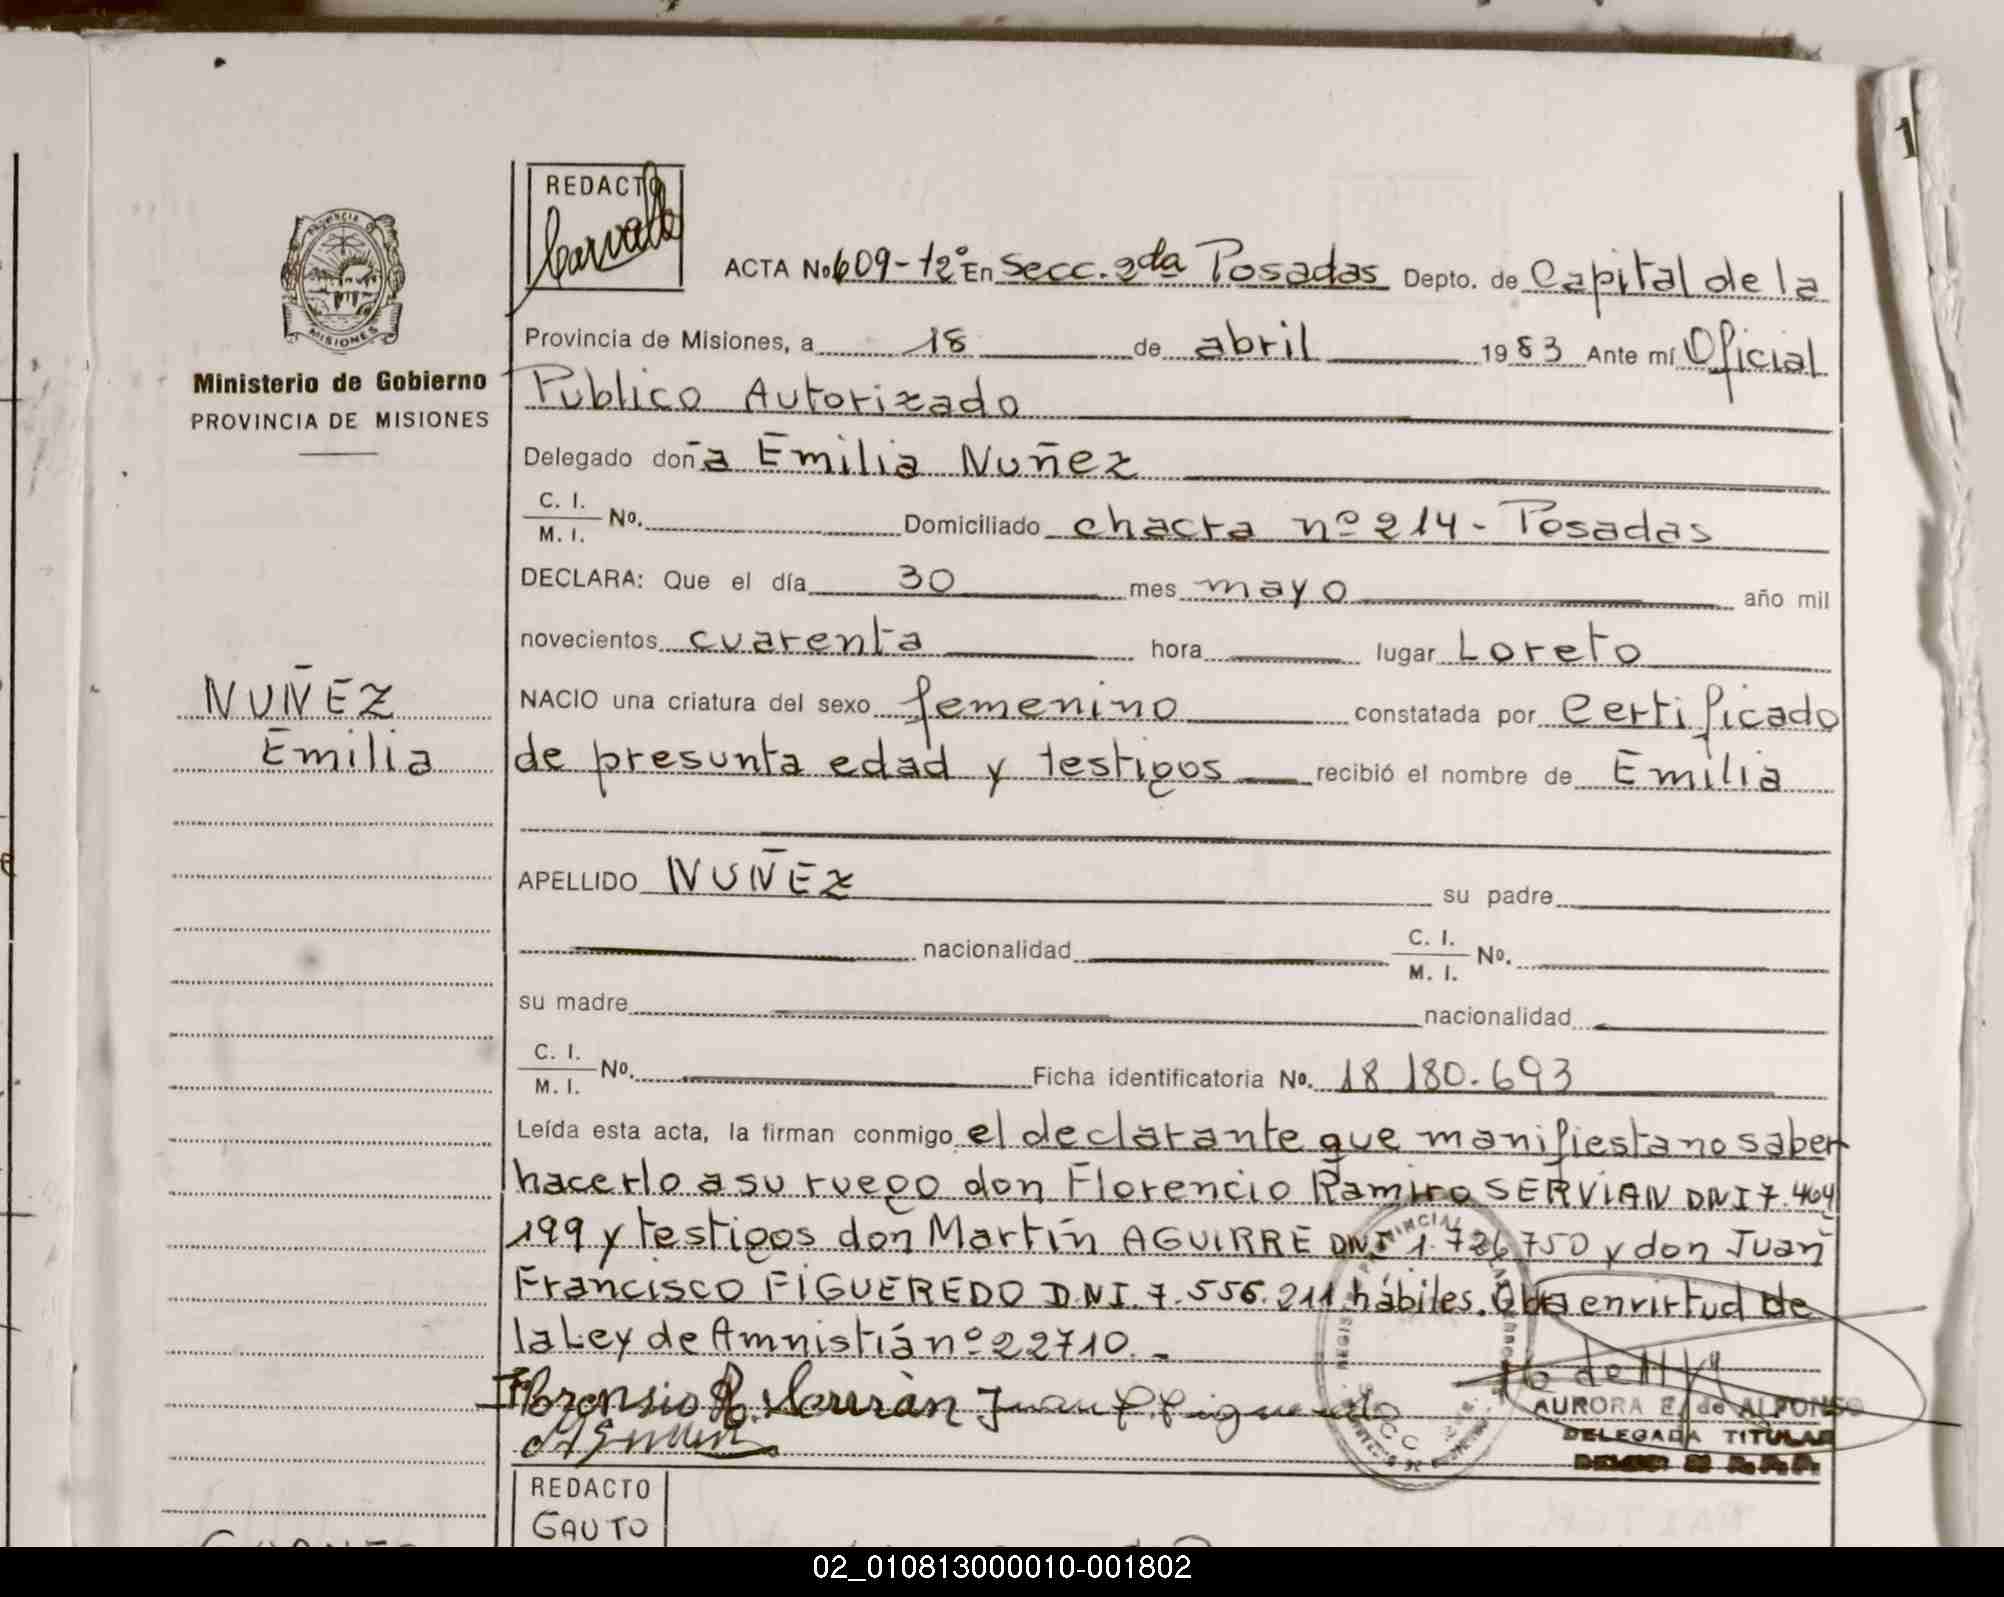 1
REDACTO
Carvallo
PROVINCIA DE
MISIONES
Ministerio de Gobierno
PROVINCIA DE MISIONES
ACTA No 609-12º En Secc. 2da Posadas Depto. de Capital de la
Provincia de Misiones, a 18 de abril 1983 Ante mí Oficial
Publico Autorizado
Delegado doña Emilia Nuñez
C. I. M. I. Nº. Domiciliado chacra nº 214 - Posadas
DECLARA: Que el día 30 mes mayo año mil
novecientos cuarenta hora lugar Loreto
NUÑEZ
Emilia
NACIO una criatura del sexo femenino constatada por Certificado
de presunta edad y testigos recibió el nombre de Emilia
APELLIDO NUÑEZ su padre
nacionalidad C. I. M. I. Nº.
su madre nacionalidad
C. I. M. I. Nº. Ficha identificatoria Nº. 18 180.693
Leída esta acta, la firman conmigo el declarante que manifiesta no saber
hacerlo a su ruego don Florencio Ramiro SERVIAN DNI 7.464
199 y testigos don Martín AGUIRRE DNI 1.726.750 y don Juan
Francisco FIGUEREDO D.N.I. 7.556.211 hábiles. Oba en virtud de
la Ley de Amnistiá nº 22710. -
Florensio R. Servián Juan F. Figueredo
AURORA E. de ALFONSO
DELEGADA TITULAR
REDACTO
GAUTO
02_010813000010-001802